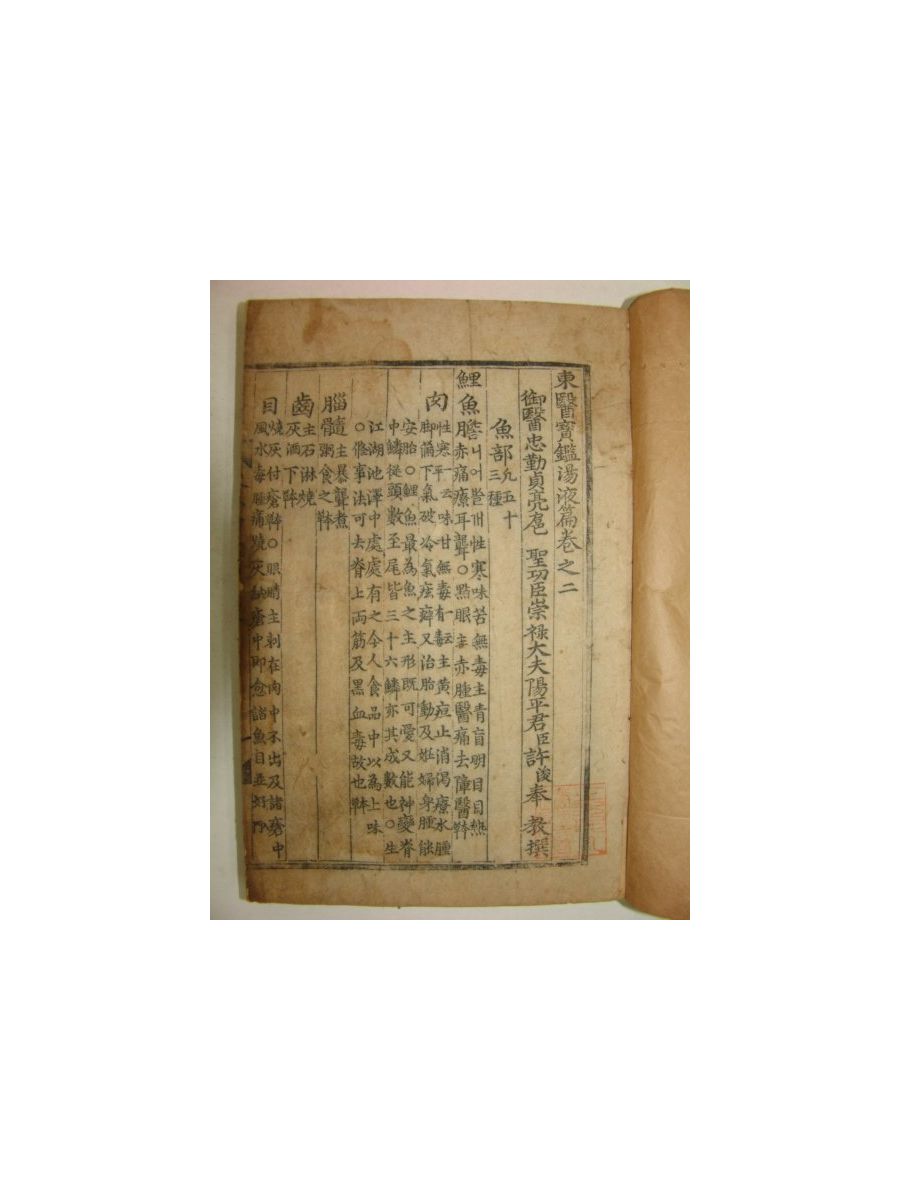 東醫寶鑑湯液篇卷之二
御醫忠勤貞亮扈 聖功臣崇祿大夫陽平君臣許浚奉 敎撰
魚部 凡五十三種
鯉魚膽 니어쁠게 性寒味苦無毒主靑盲明目目熱
赤痛療耳聾○點眼主赤腫瞖痛去障瞖
肉 性寒一云平味甘無毒一云有毒主黃疸止消渴療水腫
脚滿下氣破冷氣痃癖又治胎動及姙婦身腫能
安胎○鯉魚最爲魚之主形旣可愛又能神變脊
中鱗從頭數至尾皆三十六鱗亦其成數也○生
江湖池澤中處處有之今人食品中以爲上味
○修事法可去脊上兩筋及黑血毒故也
腦髓 主暴聾煮
粥食之
骨
齒 主石淋燒
灰酒下
目 燒灰付瘡○眼睛主刺在肉中不出及諸瘡中
風水毒腫痛燒灰納瘡中卽愈諸魚目並好